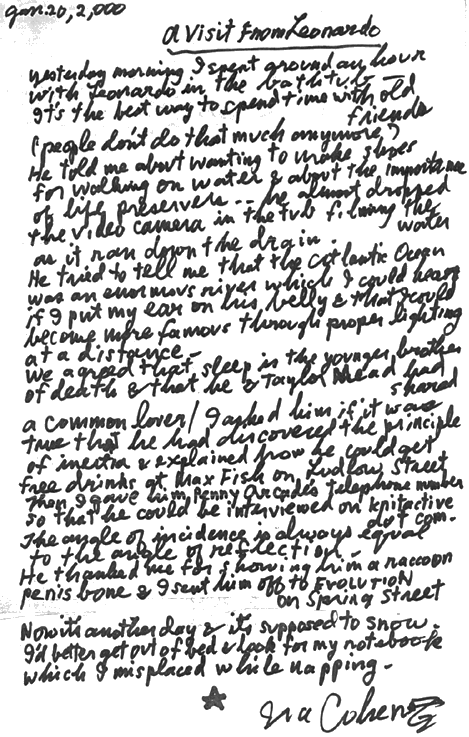 Jan. 20, 2,000
A Visit From Leonardo
yesterday morning I spent around an hour
with Leonardo in the bathtub —
It's the best way to spend time with old
friends
(people don't do that much anymore?)
He told me about wanting to make shoes
for walking on water & about the importance
of life preservers -- he almost dropped
the video camera in the tub filming the
water
as it ran down the drain.
He tried to tell me that the Atlantic Ocean
was an enormous river which I could hear
if I put my ear on his belly & that I could
become more famous through proper lighting
at a distance -
We agreed that sleep is the younger brother
of death & that he & Taylor Mead had
shared
a common lover / I asked him if it was
true that he had discovered the principle
of inertia & explained how he could get
free drinks at Max Fish on Ludlow Street
Then I gave him Penny Arcade's telephone number
so that he could be interviewed on
dot com.
The angle of incidence is always equal
to the angle of reflection.
He thanked me for showing him a raccoon
penis bone & I sent him off to EVOLUTION
on Spring Street
Now its another day & it's supposed to snow.
I'd better get out of bed & look for my notebook
which I misplaced while napping -
Ira Cohen